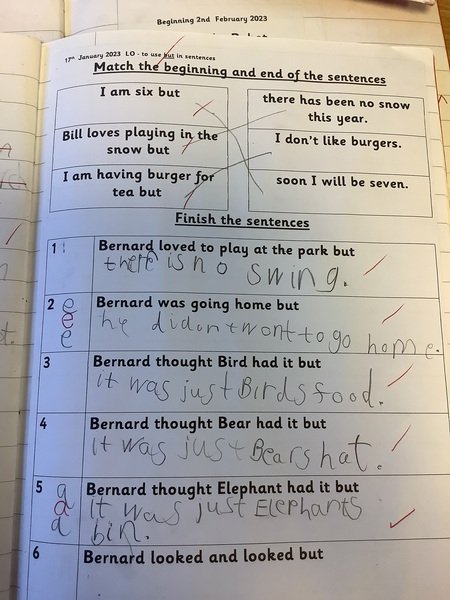 Beginning 2nd February 2023
17th January 2023 LO - to use but in sentences
Match the beginning and end of the sentences
I am six but
there has been no snow
this year.
Bill loves playing in the
snow but
I don't like burgers.
I am having burger for
tea but
soon I will be seven.
Finish the sentences
1
Bernard loved to play at the park but
there is no swing.
2
Bernard was going home but
e
e
e
he didon t wont to go home.
3
Bernard thought Bird had it but
it was just Birds food.
4
Bernard thought Bear had it but
it was just Bears hat.
5
Bernard thought Elephant had it but
a
a
a
it was just Elephants
bin.
6
Bernard looked and looked but